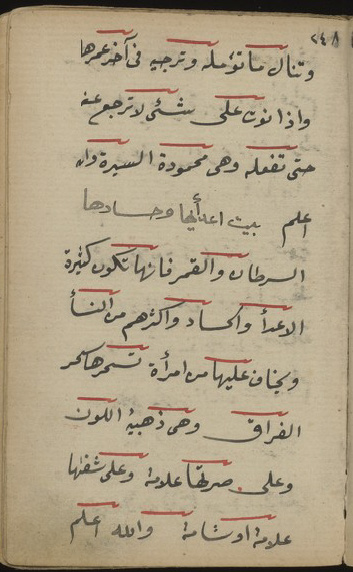 ٢٤٨
وتنال ما تؤمله وترجيه فى آخر عمرها
واذا نوت على شئ لا ترجع عنه
حتى تفعله وهى محمودة السيرة والله
اعلم بيت اعدأيها وحسادها
السرطان والقمر فانها تكون كثيرة
الاعدأ والحساد واكثرهم من النسأ
ويخاف عليها من امرأة تسحرها سحر
الفراق وهى ذهبية اللون
وعلى صرتها علامة وعلى شفتها
علامة او شامة والله اعلم